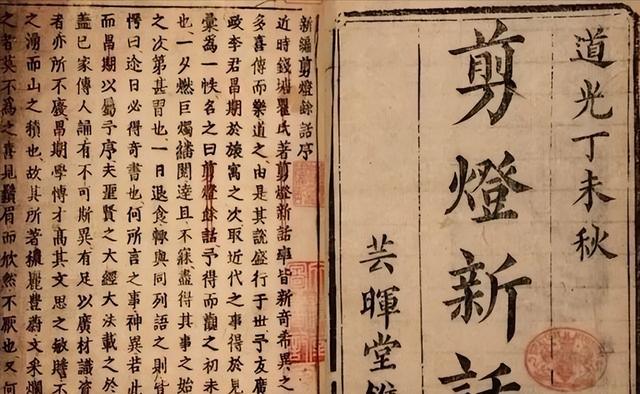 道光丁未秋
剪燈新話
芸暉堂
新編剪燈餘話序
近時錢塘瞿氏著剪燈新話率皆新奇希異之
多喜傳而樂道之由是其說盛行于世予友廣
政李君昌期於旅寓之次取近代之事得於見
彙為一帙名之曰剪燈餘話予得而觀之初未
也一夕燃巨燭繙閱達旦不寐盡得其事之始
之次第甚習也一日退食輒與同列語之則皆
愕曰迩日必得奇書也何所言之事神異若此
而昌期以屬予序夫聖賢之大經大法載之於
蓋已家傳人誦有不可斯異有足以廣材識資
者亦所不廢昌期學博才高其文思之敏贍不
之湧而山之積也故其所著穠麗豐蔚文采爛
之者莫不為之喜見鬚眉而欣然不厭也又何